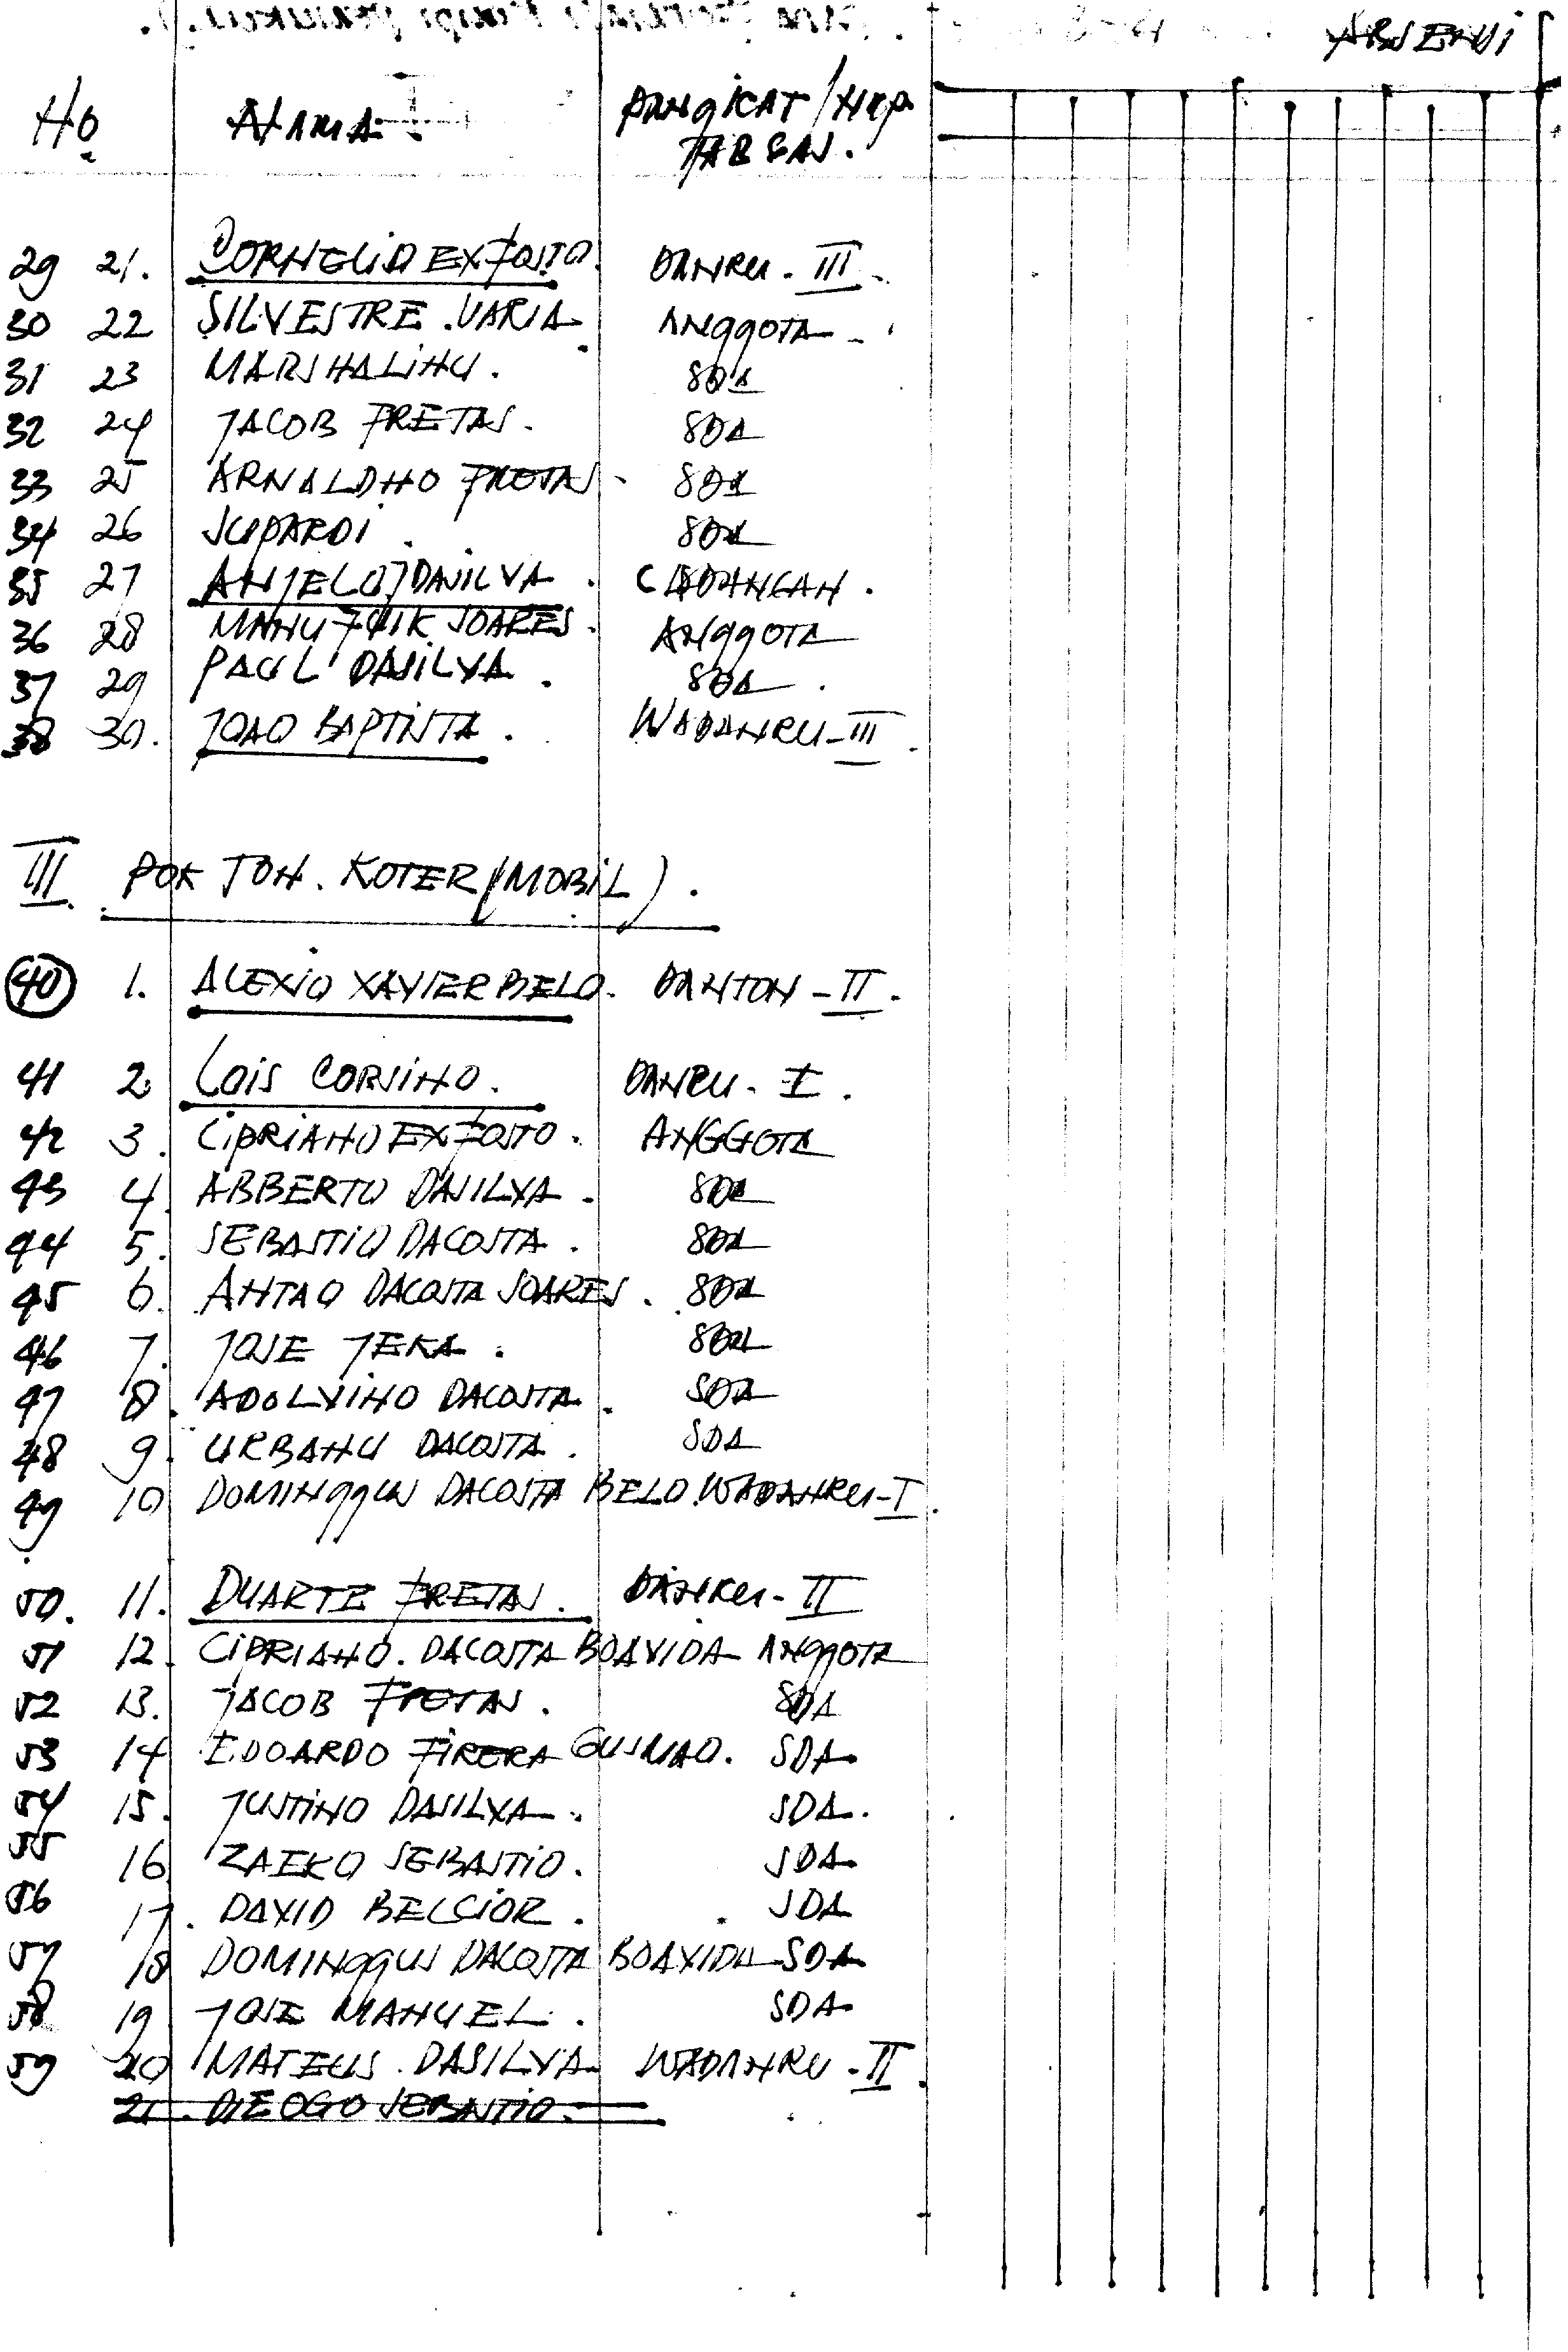 ABSENSI
No. NAMA. PANGKAT/NRP
JABSAN.
29 21. CORNELIO EXPOSTO. DANRU - III -
30 22 SILVESTRE . VARIA ANGGOTA -
31 23 MARSHALINU. SDA
32 24 JACOB FRETAS. SDA
33 25 ARNALDHO FRETAS - SDA
34 26 SUPARDI. SDA
35 27 ANJELO DASILVA. CADANGAN.
36 28 MANU FUIK SOARES. ANGGOTA
37 29 PAUL DASILVA. SDA.
38 30. JOAO BAPTISTA. WADANRU - III.
III. POK TON. KOTER (MOBIL).
40 1. ALEXIO XAVIER BELO. DANTON - II.
41 2. LOIS CORSINO. DANRU - I.
42 3. CIPRIANO EXPOSTO. ANGGOTA
43 4. ABBERTO DASILVA. SDA
44 5. SEBASTIO DACOSTA. SDA
45 6. ANTAO DACOSTA SOARES. SDA
46 7. JOSE JEKA. SDA
47 8. ADOLVINO DACOSTA. SDA
48 9. URBANU DACOSTA. SDA
49 10 DOMINGGUS DACOSTA BELO. WADANRU - I.
50. 11. DUARTE FRETAS. DANRU - II
51 12. CIPRIANO. DACOSTA BOAVIDA ANGGOTA
52 13. JACOB FRETAS. SDA
53 14 EDOARDO FIRERA GUSMAO. SDA
54 15. JUSTINO DASILVA. SDA.
55 16 ZAEKO SEBASTIO. SDA
56 17. DAVID BELCIOR. SDA
57 18 DOMINGGUS DACOSTA BOAVIDA SDA
58 19 JOSE MANUEL. SDA
59 20 MATEUS. DASILVA WADANRU - II.
21. DIEOGO SEBASTIO.